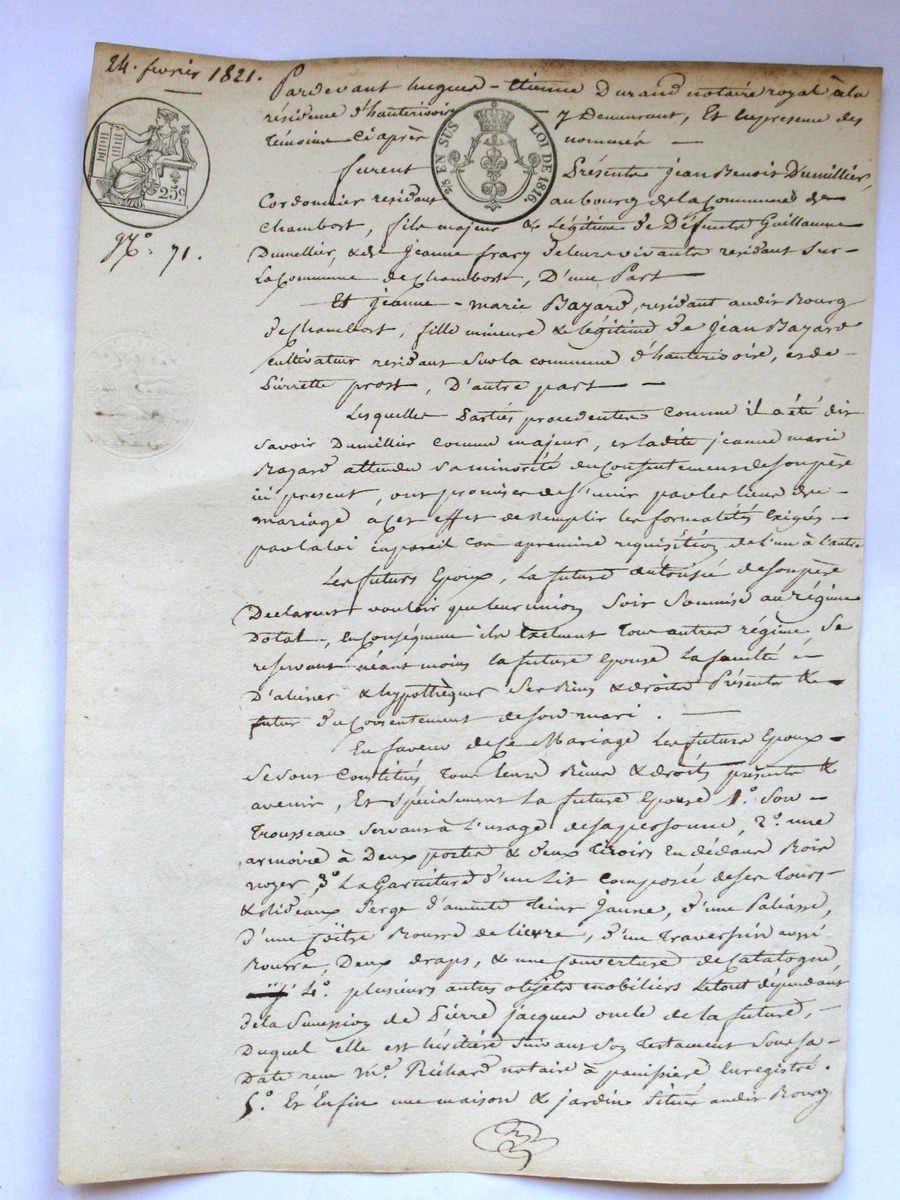 24. fevrier 1821.
Pardevant hugues - Etienne Durand notaire royal à la
résidence d'hauterivoire y Demeurant, Et En presence des
témoins Ci après nommés —
25 EN SUS LOI DE 1816
25c.
N.º 71.
furent Présents jean Benoit Dumillier,
Cordonnier residant au bourg de la Commune de
Chambost, fils majeur & Légitime de Défunts Guillaume
Dumellier, & de jeanne frary de leur vivants residant Sur
La Commune de Chambost, D'une Part
Et jeanne - marie Bazard, residant audit Bourg
de Chambost, fille mineure & légitime de Jean Bazard
Cultivateur residant Sur la commune d'hauterivoire, et de
Pierrette prost, D'autre part —
Lesquelles Parties procedentes Comme il a été dit
Savoir Dumillier Comme majeur, et ladite jeanne marie
Bazard attendu sa minorité du Consentement de son père
ici present, ont promis de s'unir par les liens du
mariage a cet effet de Remplir les formalités Exigées
par la loi en pareil cas a premiere requisition de l'un à l'autre
Les futurs Epoux, La future autorisée de son père
Declarent vouloir que leur union Soit Soumise au régime
Dotal, en conséquence ils Excluent Tout autre régime, Se
reservant néant moins la future Epouse La faculté
D'aliéner & hypothèquer Ses Biens & droits Présents &
futur du Consentement de son mari. —
En faveur de ce Mariage Les futurs Epoux
Se sont Constitués Tous leurs Biens & droits présents &
avenir, Et Spécialement La future Epouse 1.º Son
Trousseau Servant à l'usage de sa personne, 2.º une
armoire à Deux portes & deux Tiroirs En dedans Bois
noyer, 3.º La Garniture d'un Lit Composée de ses Tours
& rideaux Serge d'amiante teint jaune, d'une Paliasse,
d'une Coëtre Bourre de lievre, d'un Traversin aussi
Bourre, Deux draps, & une Couverture de Catalogne
4.º plusieurs autres objets mobiliers Le tout dépendant
de la Succession de Pierre jacques oncle de la future,
Duquel elle est héritière Suivant Son Testament Sous Sa
Date reçu M.e Richard notaire à panissière Enregistré.
5.º Et Enfin une maison & jardin Situés audit Bourg